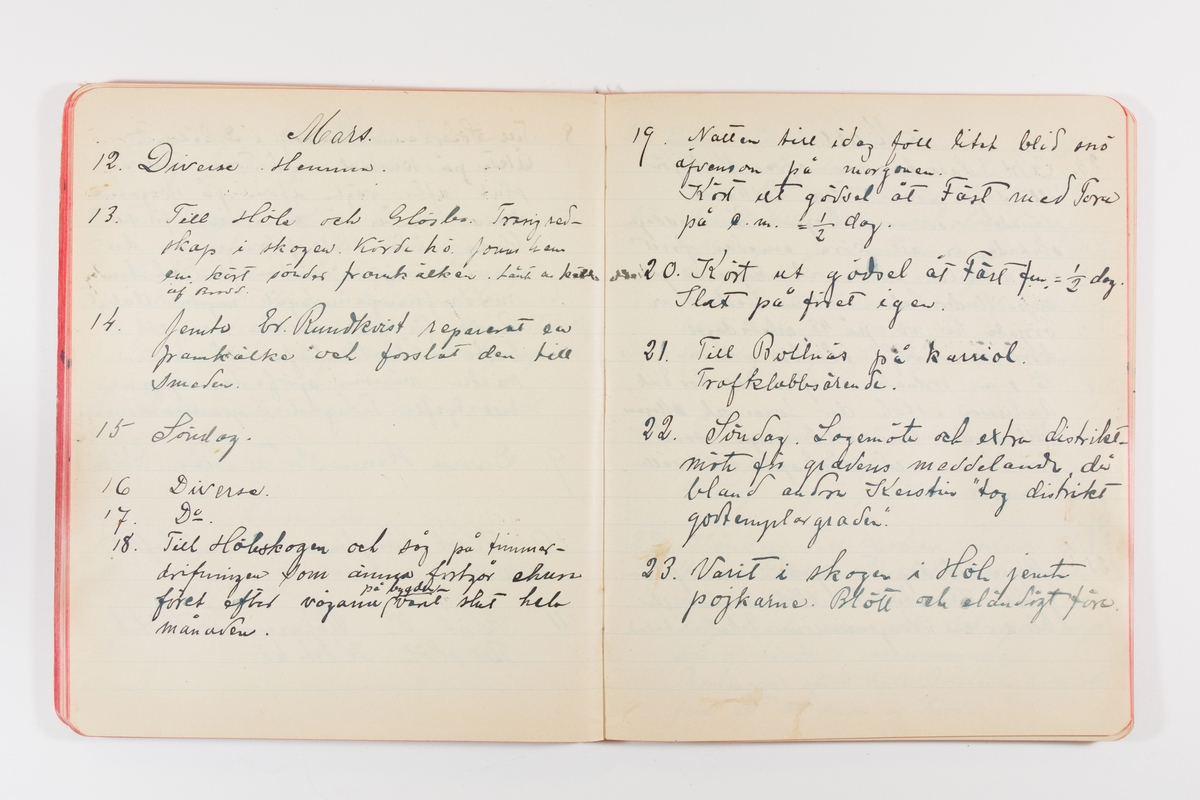 Mars.
12. Diverse. Hemma.
13. Till Höle och Glösbo. Trasig red-
skap i skogen. Körde hö. Jonas hem
en kört sönder framkälken. Lånt en kälke
af Brodd.
14. Jemte Er. Rundkvist reparerat en
framkälke och forslat den till
smeden.
15 Söndag.
16 Diverse.
17. Do.
18. Till Höleskogen och såg på timmer-
drifningen som ännu fortgår ehuru
på bygden
föret efter vägarne varit slut hela
månaden.
19. Natten till idag föll litet blid snö
äfvenson på morgonen.
Kört ut gödsel åt Fäst med Tora
på e.m. = 1/2 dag.
20. Kört ut gödsel åt Fäst fm = 1/2 dag.
Slut på föret igen.
21. Till Bollnäs på karriol.
Trafklubbsärende.
22. Söndag. Logemöte och extra distrikt-
möte för gradens meddelande, då
bland andra Kerstin "tog distrikt
godtemplargraden".
23. Varit i skogen i Höle jemte
pojkarne. Blött och eländigt före.